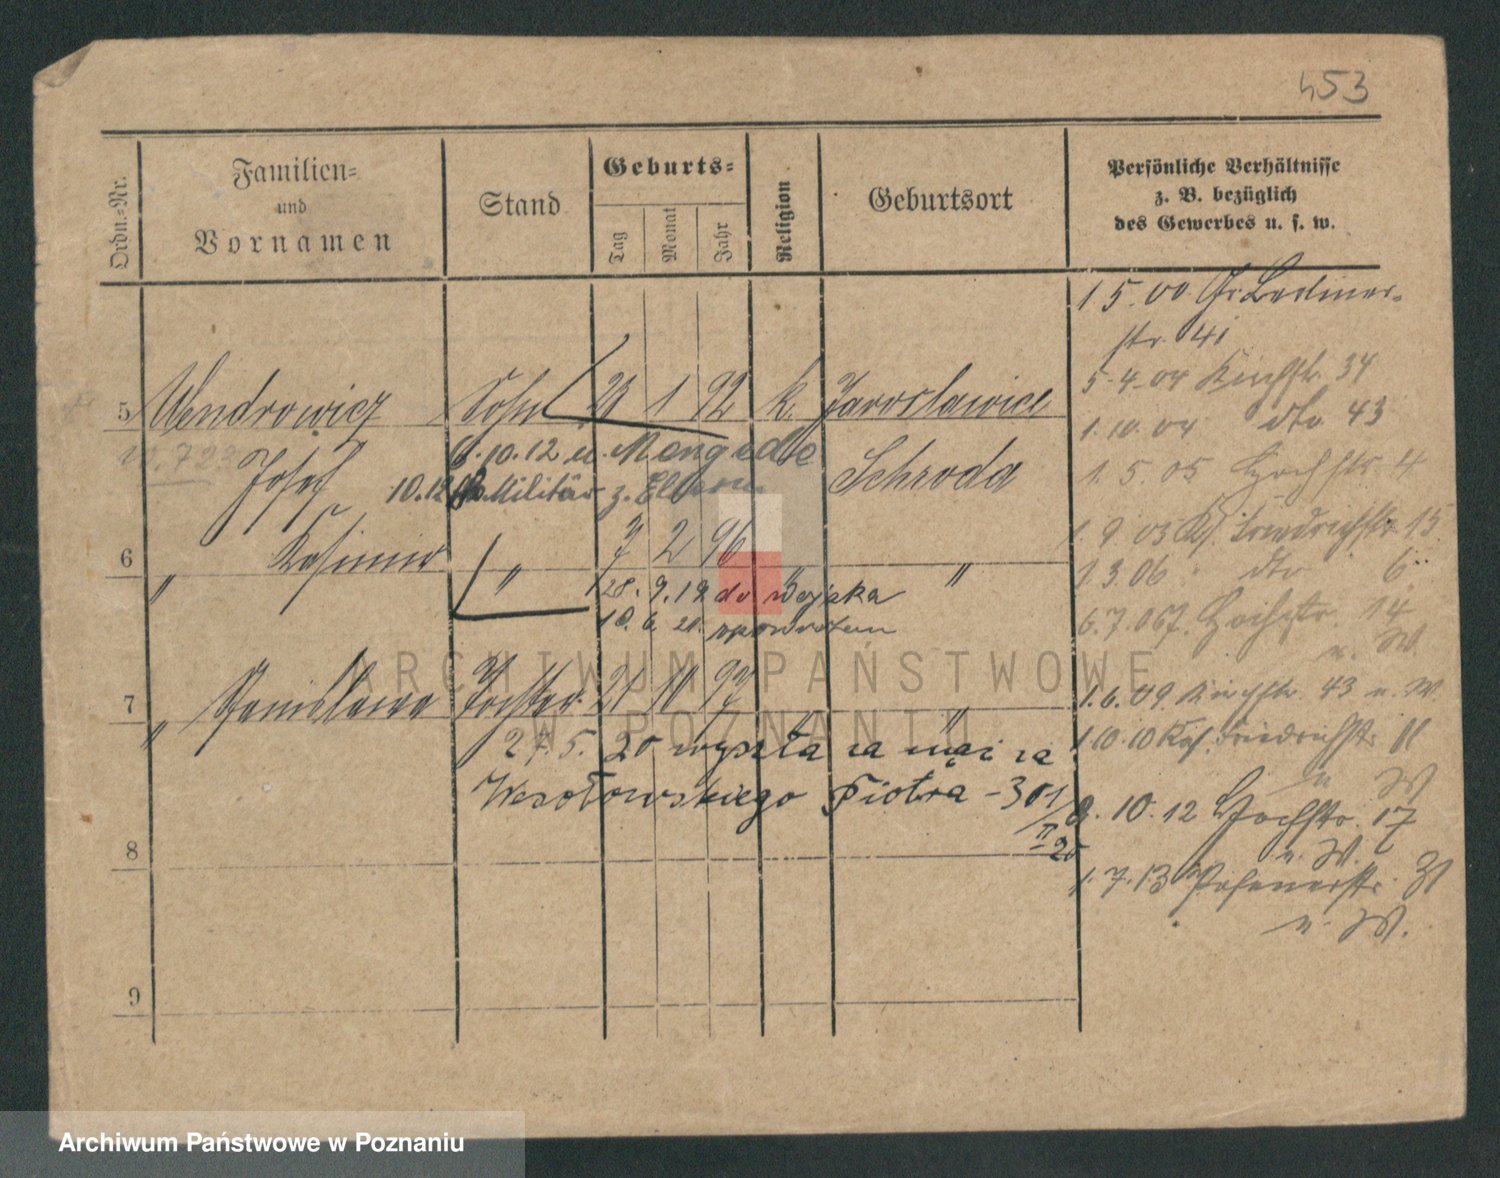 453
Ordn.-Nr.
Familien-
und
Vornamen
Stand
Geburts-
Tag
Monat
Jahr
Religion
Geburtsort
Persönliche Verhältnisse
z. B. bezüglich
des Gewerbes u. s. w.
1 5.00 Gr. Berliner-
str. 41
5.4.04 Kirchstr. 34
1.10.04 dto 43
1.5.05 Hochstr. 4
5 Wendrowicz Sohn 1 92 k. Jaroslawice
Josef
.10.12 n. Mengede
Schroda
10.12 Militär z. Eltern
1.9.05 Friedrichstr. 15
6 " Kasimir " 7 2 96 " "
1.3.06 dto 6
28. 9. 19 do wojska
10. 6. 20. spowrotem
6.7.06 14
n. W.
7 " Stanislawa Tochter 21 10 97 " "
1.6.09 Kirchstr. 43 n. W
1.10.10 Friedrichstr. 11
n W
27. 5. 20 wyszła za mąż za
Wesołowskiego Piotra - 301/
II
20
. 10. 12 Hochstr. 17
n. W.
1.7.13 Posenerstr. 31
n. W.
8
9
ARCHIWUM PAŃSTWOWE
W POZNANIU
Archiwum Państwowe w Poznaniu